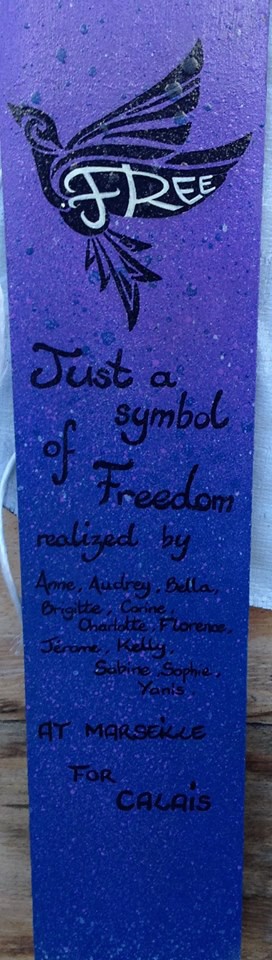 FREE
Just a
symbol
of
Freedom
realized by
Anne, Audrey, Bella,
Brigitte, Corine,
Charlotte, Florence,
Jérome, Kelly,
Sabine, Sophie,
Yanis
AT MARSEILLE
FOR
CALAIS